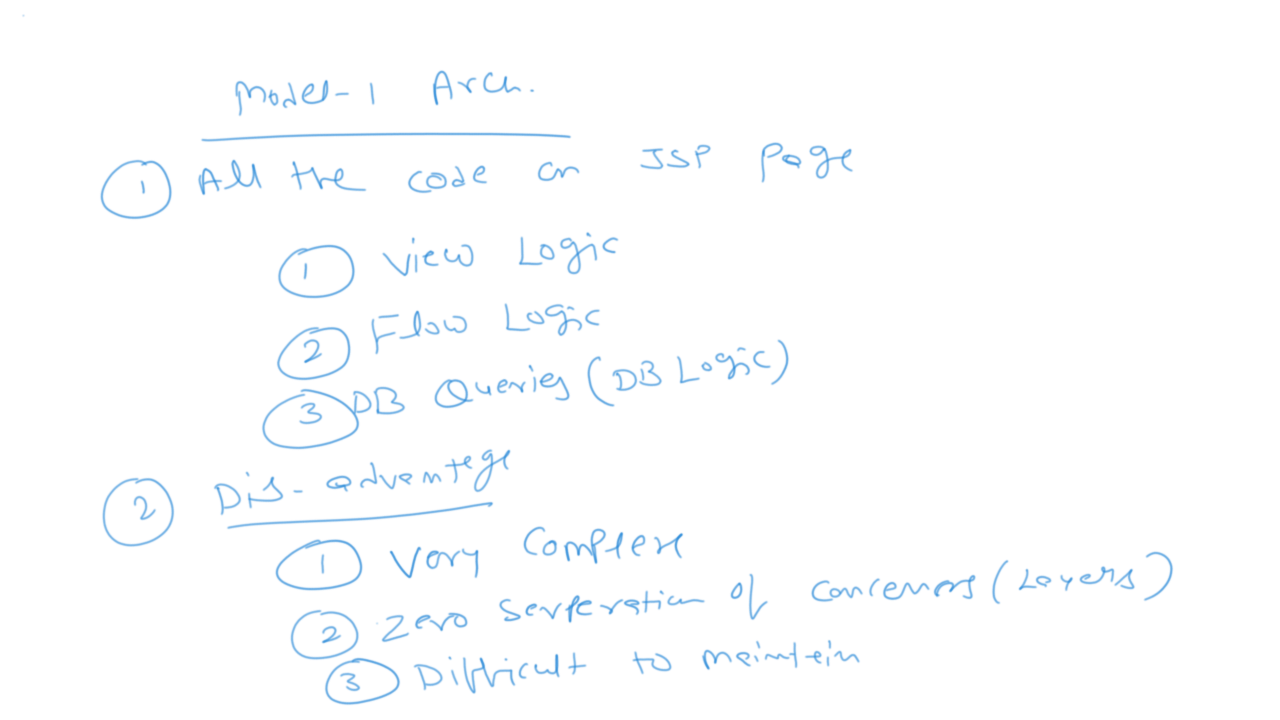 Model-1 Arch.
1 All the code on JSP Page
1 View Logic
2 Flow Logic
3 DB Queries (DB Logic)
2 Dis-advantege
1 Very Complex
2 Zero Serperation of Concerners (Layers)
3 Difficult to maintain